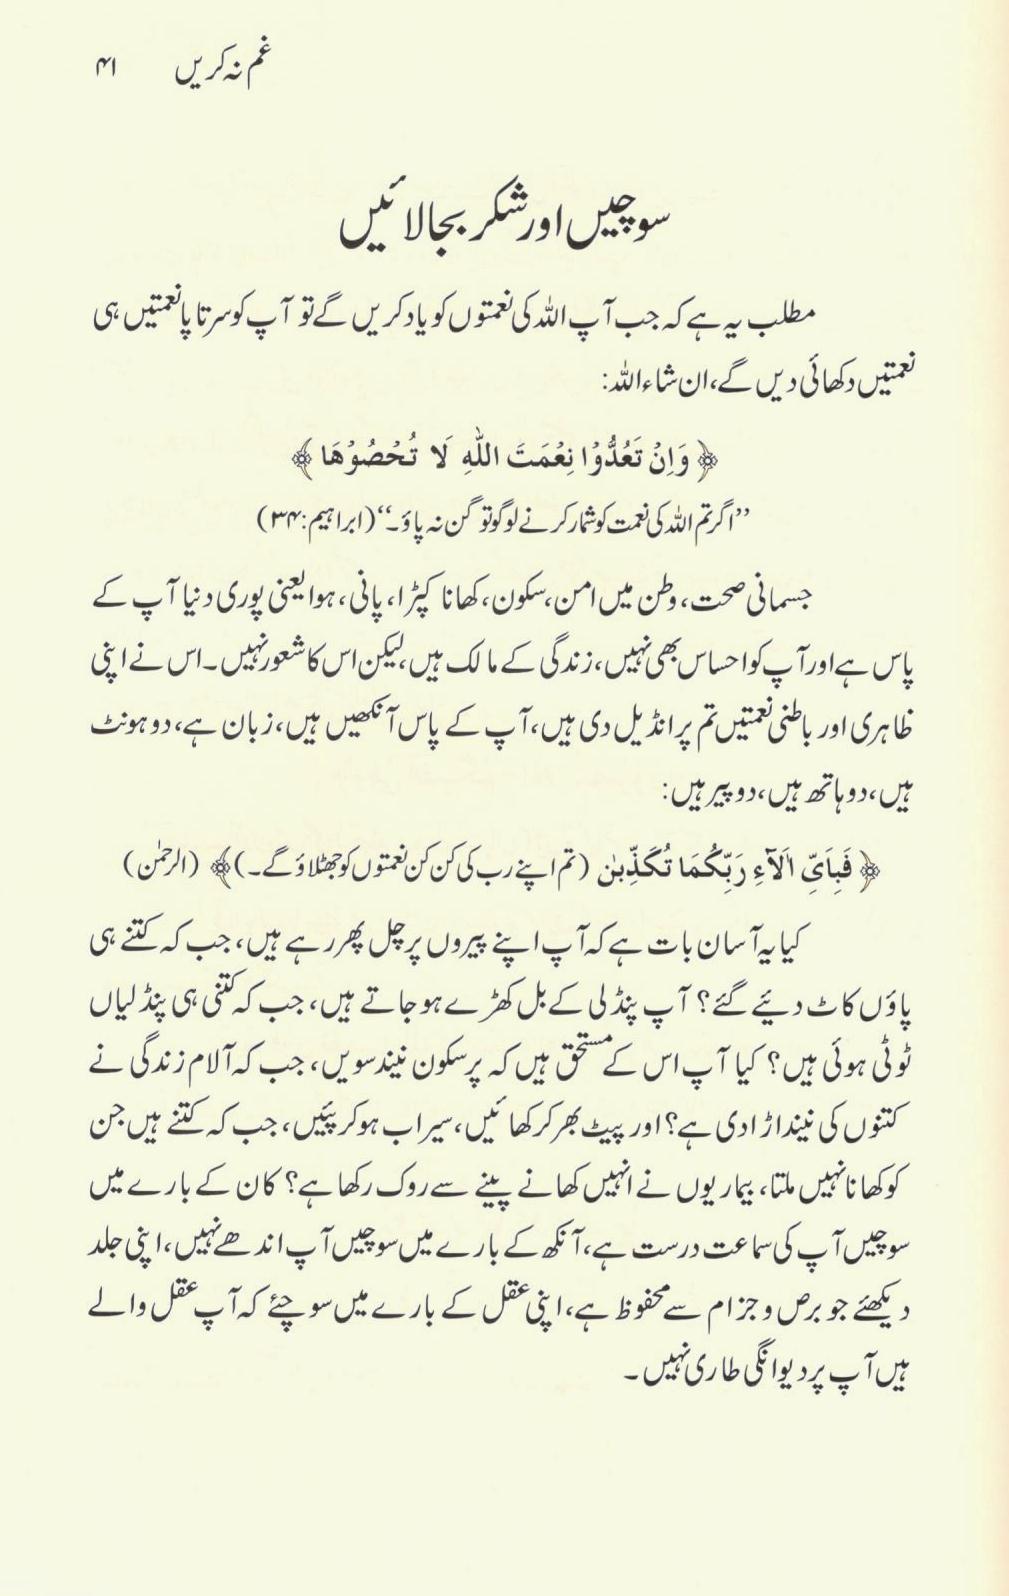 غم نہ کریں ۴۱
سوچیں اور شکر بجا لائیں
مطلب یہ ہے کہ جب آپ اللہ کی نعمتوں کو یاد کریں گے تو آپ کو سرتا پا نعمتیں ہی
نعمتیں دکھائی دیں گے، ان شاء اللہ:
﴿ وَاِنْ تَعُدُّوْا نِعْمَتَ اللّٰہِ لَا تُحْصُوْهَا ﴾
’’اگر تم اللہ کی نعمت کو شمار کرنے لوگو تو گن نہ پاؤ۔‘‘ (ابراہیم:۳۴)
جسمانی صحت، وطن میں امن، سکون، کھانا کپڑا، پانی، ہوا یعنی پوری دنیا آپ کے
پاس ہے اور آپ کو احساس بھی نہیں، زندگی کے مالک ہیں، لیکن اس کا شعور نہیں۔ اس نے اپنی
ظاہری اور باطنی نعمتیں تم پر انڈیل دی ہیں، آپ کے پاس آنکھیں ہیں، زبان ہے، دو ہونٹ
ہیں، دو ہاتھ ہیں، دو پیر ہیں:
﴿ فَبِاَیِّ اٰلَآءِ رَبِّکُمَا تُکَذِّبٰن (تم اپنے رب کی کن کن نعمتوں کو جھٹلاؤ گے۔)﴾ (الرحمٰن)
کیا یہ آسان بات ہے کہ آپ اپنے پیروں پر چل پھر رہے ہیں، جب کہ کتنے ہی
پاؤں کاٹ دیئے گئے؟ آپ پنڈلی کے بل کھڑے ہو جاتے ہیں، جب کہ کتنی ہی پنڈلیاں
ٹوٹی ہوئی ہیں؟ کیا آپ اس کے مستحق ہیں کہ پرسکون نیند سویں، جب کہ آلام زندگی نے
کتنوں کی نیند اڑا دی ہے؟ اور پیٹ بھر کر کھائیں، سیراب ہو کر پئیں، جب کہ کتنے ہیں جن
کو کھانا نہیں ملتا، بیماریوں نے انہیں کھانے پینے سے روک رکھا ہے؟ کان کے بارے میں
سوچیں آپ کی سماعت درست ہے، آنکھ کے بارے میں سوچیں آپ اندھے نہیں، اپنی جلد
دیکھئے جو برص و جزام سے محفوظ ہے، اپنی عقل کے بارے میں سوچئے کہ آپ عقل والے
ہیں آپ پر دیوانگی طاری نہیں۔